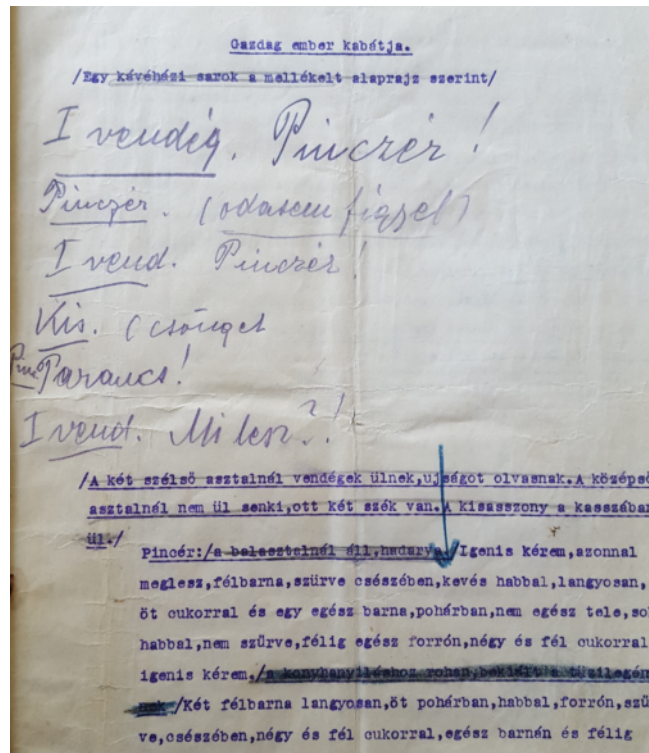 Gazdag ember kabátja.
/Egy kávéházi sarok a mellékelt alaprajz szerint/
I vendég. Pinczér!
Pinczér. (odasem figyel)
I vend. Pinczér!
Kis. (csönget
Pinc. Parancs!
I vend. Mi lesz?!
/A két szélső asztalnál vendégek ülnek,ujságot olvasnak.A középső
asztalnál nem ül senki,ott két szék van.A kisasszony a kasszában
ül./
Pincér:/a balasztalnál áll,hadarva/Igenis kérem,azonnal
meglesz,félbarna,szürve csészében,kevés habbal,langyosan,
öt cukorral és egy egész barna,pohárban,nem egész tele,so
habbal,nem szürve,félig egész forrón,négy és fél cukorral
igenis kérem./a konyhanyiláshoz rohan,bekiált a
/Két félbarna langyosan,öt pohárban,habbal,forrón,szü
ve,csészében,négy és fél cukorral,egész barnán és félig